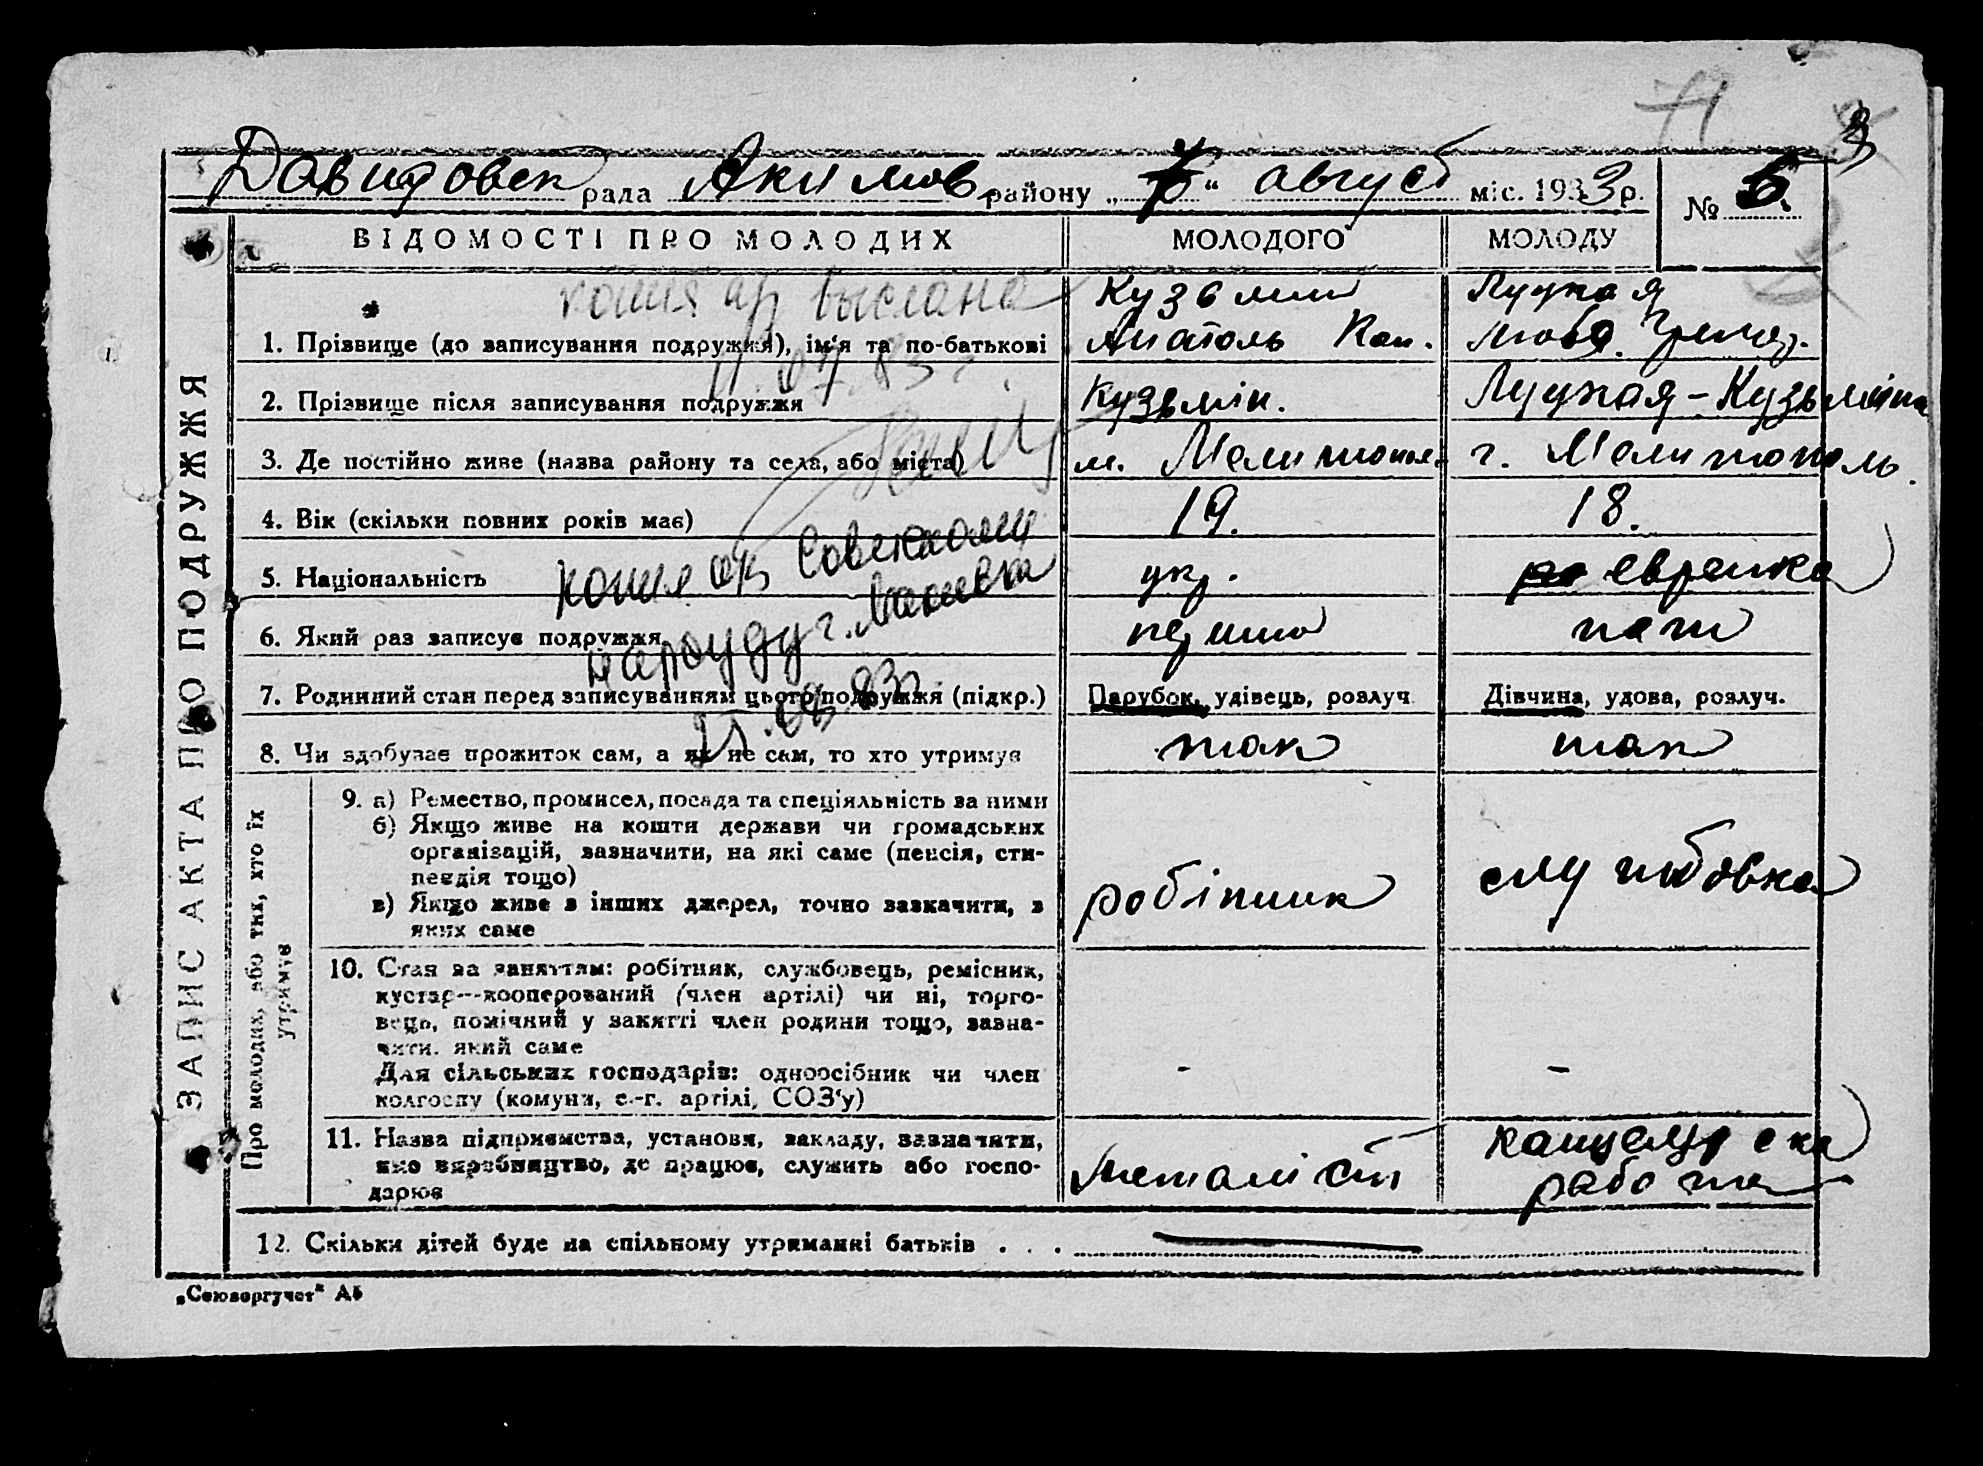 71
3
Давидовск рада Акимов району „ " август міс. 1933 р. № 6.
ЗАПИС АКТА ПРО ПОДРУЖЖЯ
ВІДОМОСТІ ПРО МОЛОДИХ МОЛОДОГО МОЛОДУ
копия а/з выслана
11.07.83 г.
1. Прізвище (до записування подружжя), ім'я та по-батькові Кузьмин Анатоль Кон. Луцкая Люба Григор.
2. Прізвище після записування подружжя Кузьмін. Луцкая-Кузьміна
3. Де постійно живе (назва району та села, або міста) м. Мелитополь г. Мелитополь.
4. Вік (скільки повних років має) 19. 18.
копия а/з Советскому
нарсуду г. Макеевка
5. Національність укр. еврейка
6. Який раз записує подружжя перший
7. Родинний стан перед записуванням цього подружжя (підкр.) Парубок, удівець, розлуч. Дівчина, удова, розлуч.
8. Чи здобуває прожиток сам, а як не сам, то хто утримує так так
Про молодих, або тих, хто їх утримує
9. а) Ремество, промисел, посада та спеціяльність за ними
б) Якщо живе на кошти держави чи громадських
організацій, зазначити, на які саме (пенсія, сти-
пендія тощо)
в) Якщо живе з інших джерел, точно зазначити, з
яких саме
робітник службовка
10. Стан за заняттям: робітник, службовець, ремісник,
кустар—кооперований (член артілі) чи ні, торго-
вець, помічний у занятті член родини тощо, зазна-
чити, який саме
Для сільських господарів: одноосібник чи член
колгоспу (комуни, с.-г. артілі, СОЗ'у)
- -
11. Назва підприємства, установи, закладу, зазначити,
яке виробництво, де працює, служить або госпо-
дарює
металіст канцелярска
работа
12. Скільки дітей буде на спільному утриманні батьків . . .
„Союзоргучет" А5